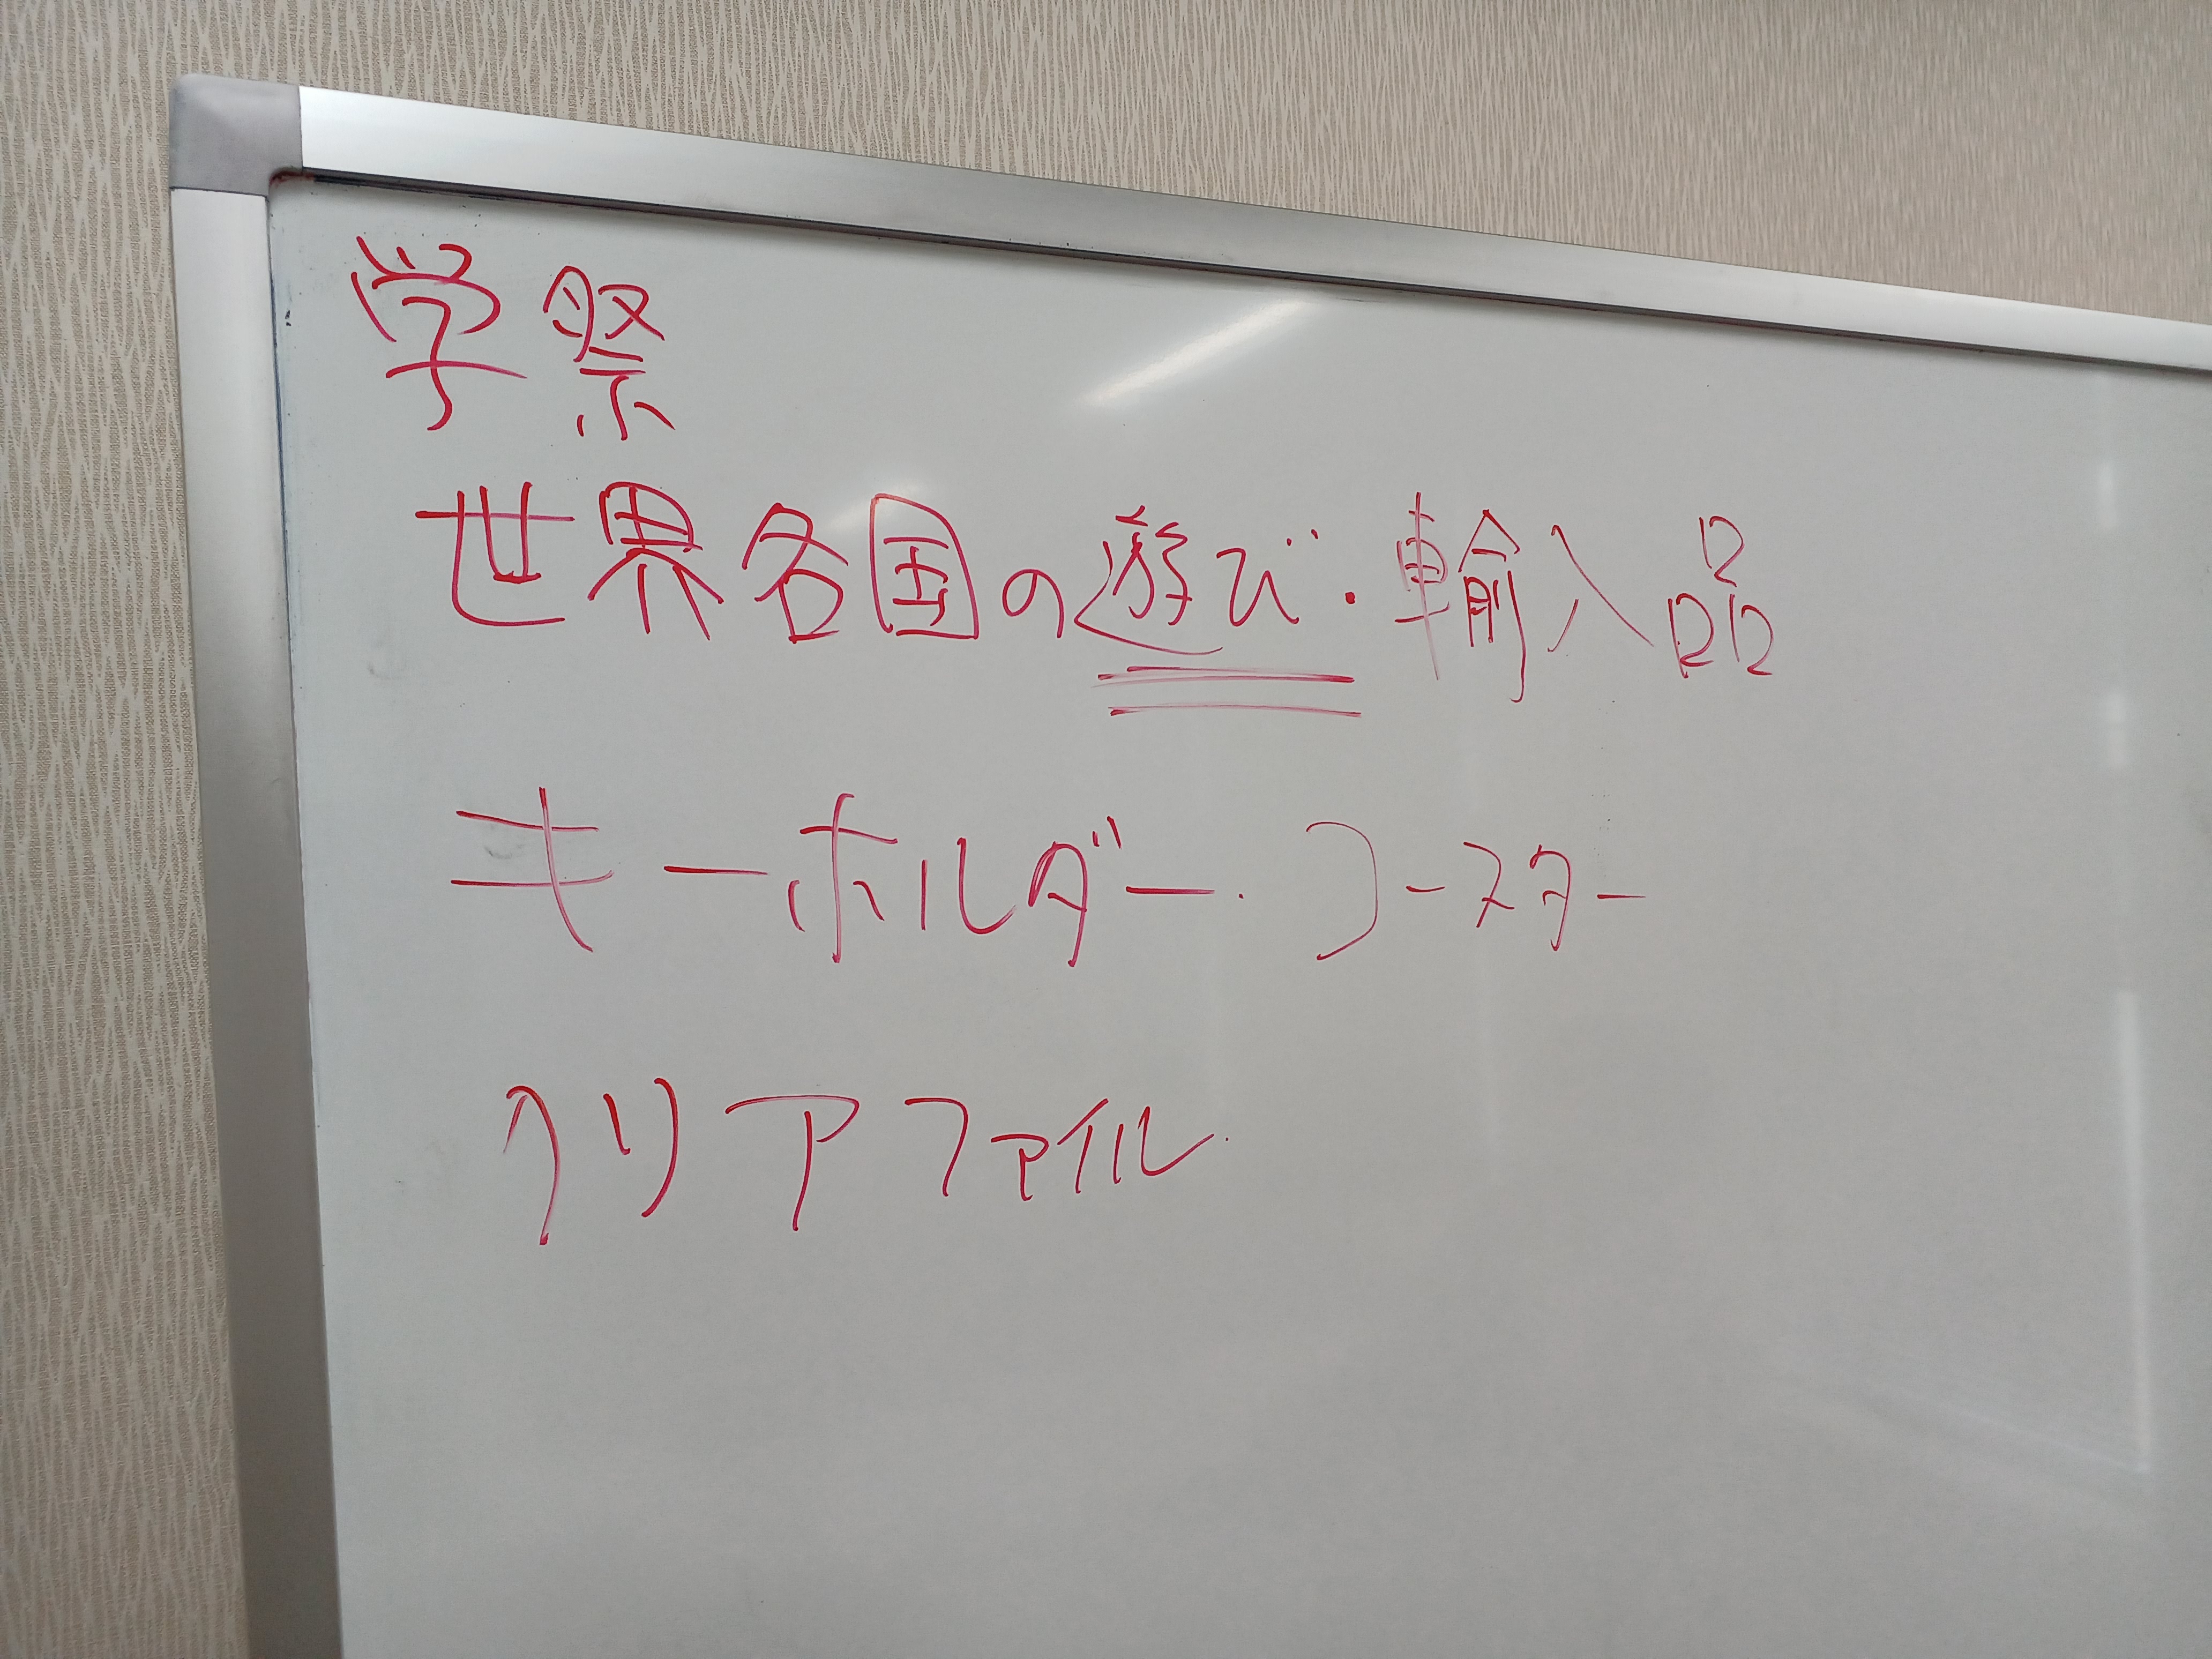 学祭
世界各国の遊び・輸入品
キーホルダー・コースター
クリアファイル